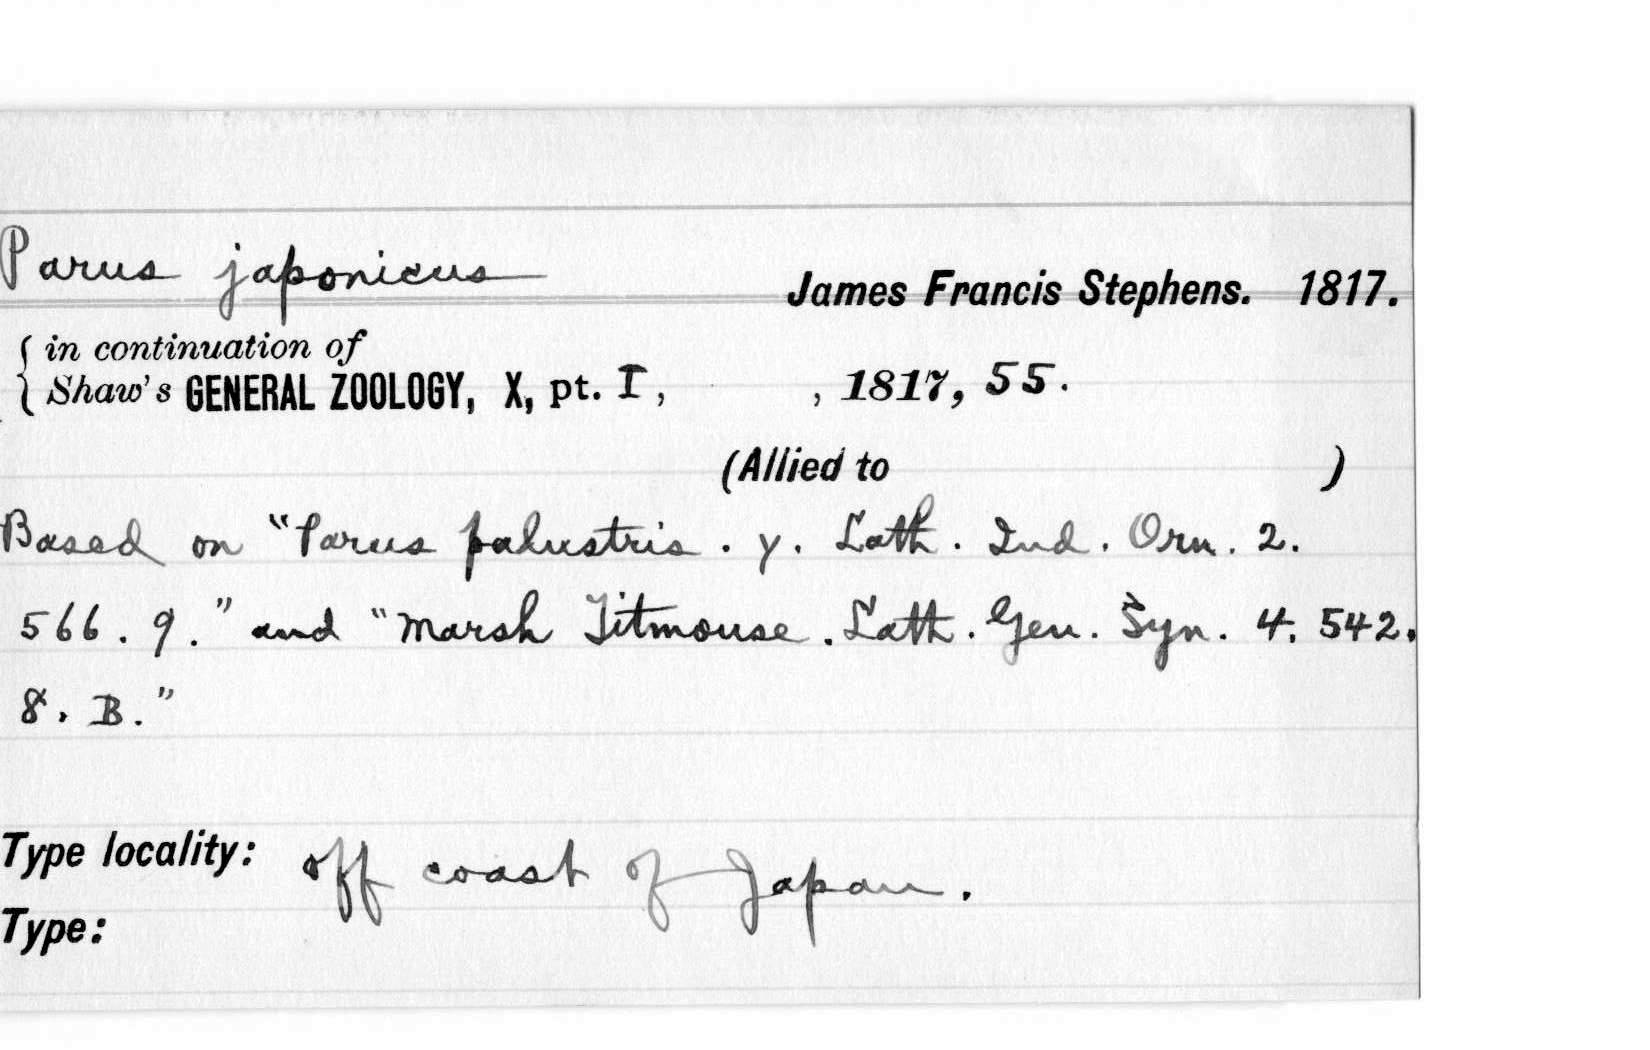 Parus japonicus
James Francis Stephens. 1817.
in continuation of
Shaw's GENERAL ZOOLOGY, X, pt. I, , 1817, 55.
(Allied to )
Based on "Parus palustris. γ. Lath. Ind. Orn. 2.
566. 9." and "Marsh Titmouse. Lath. Gen. Syn. 4. 542.
8. B."
Type locality: off coast of Japan.
Type: